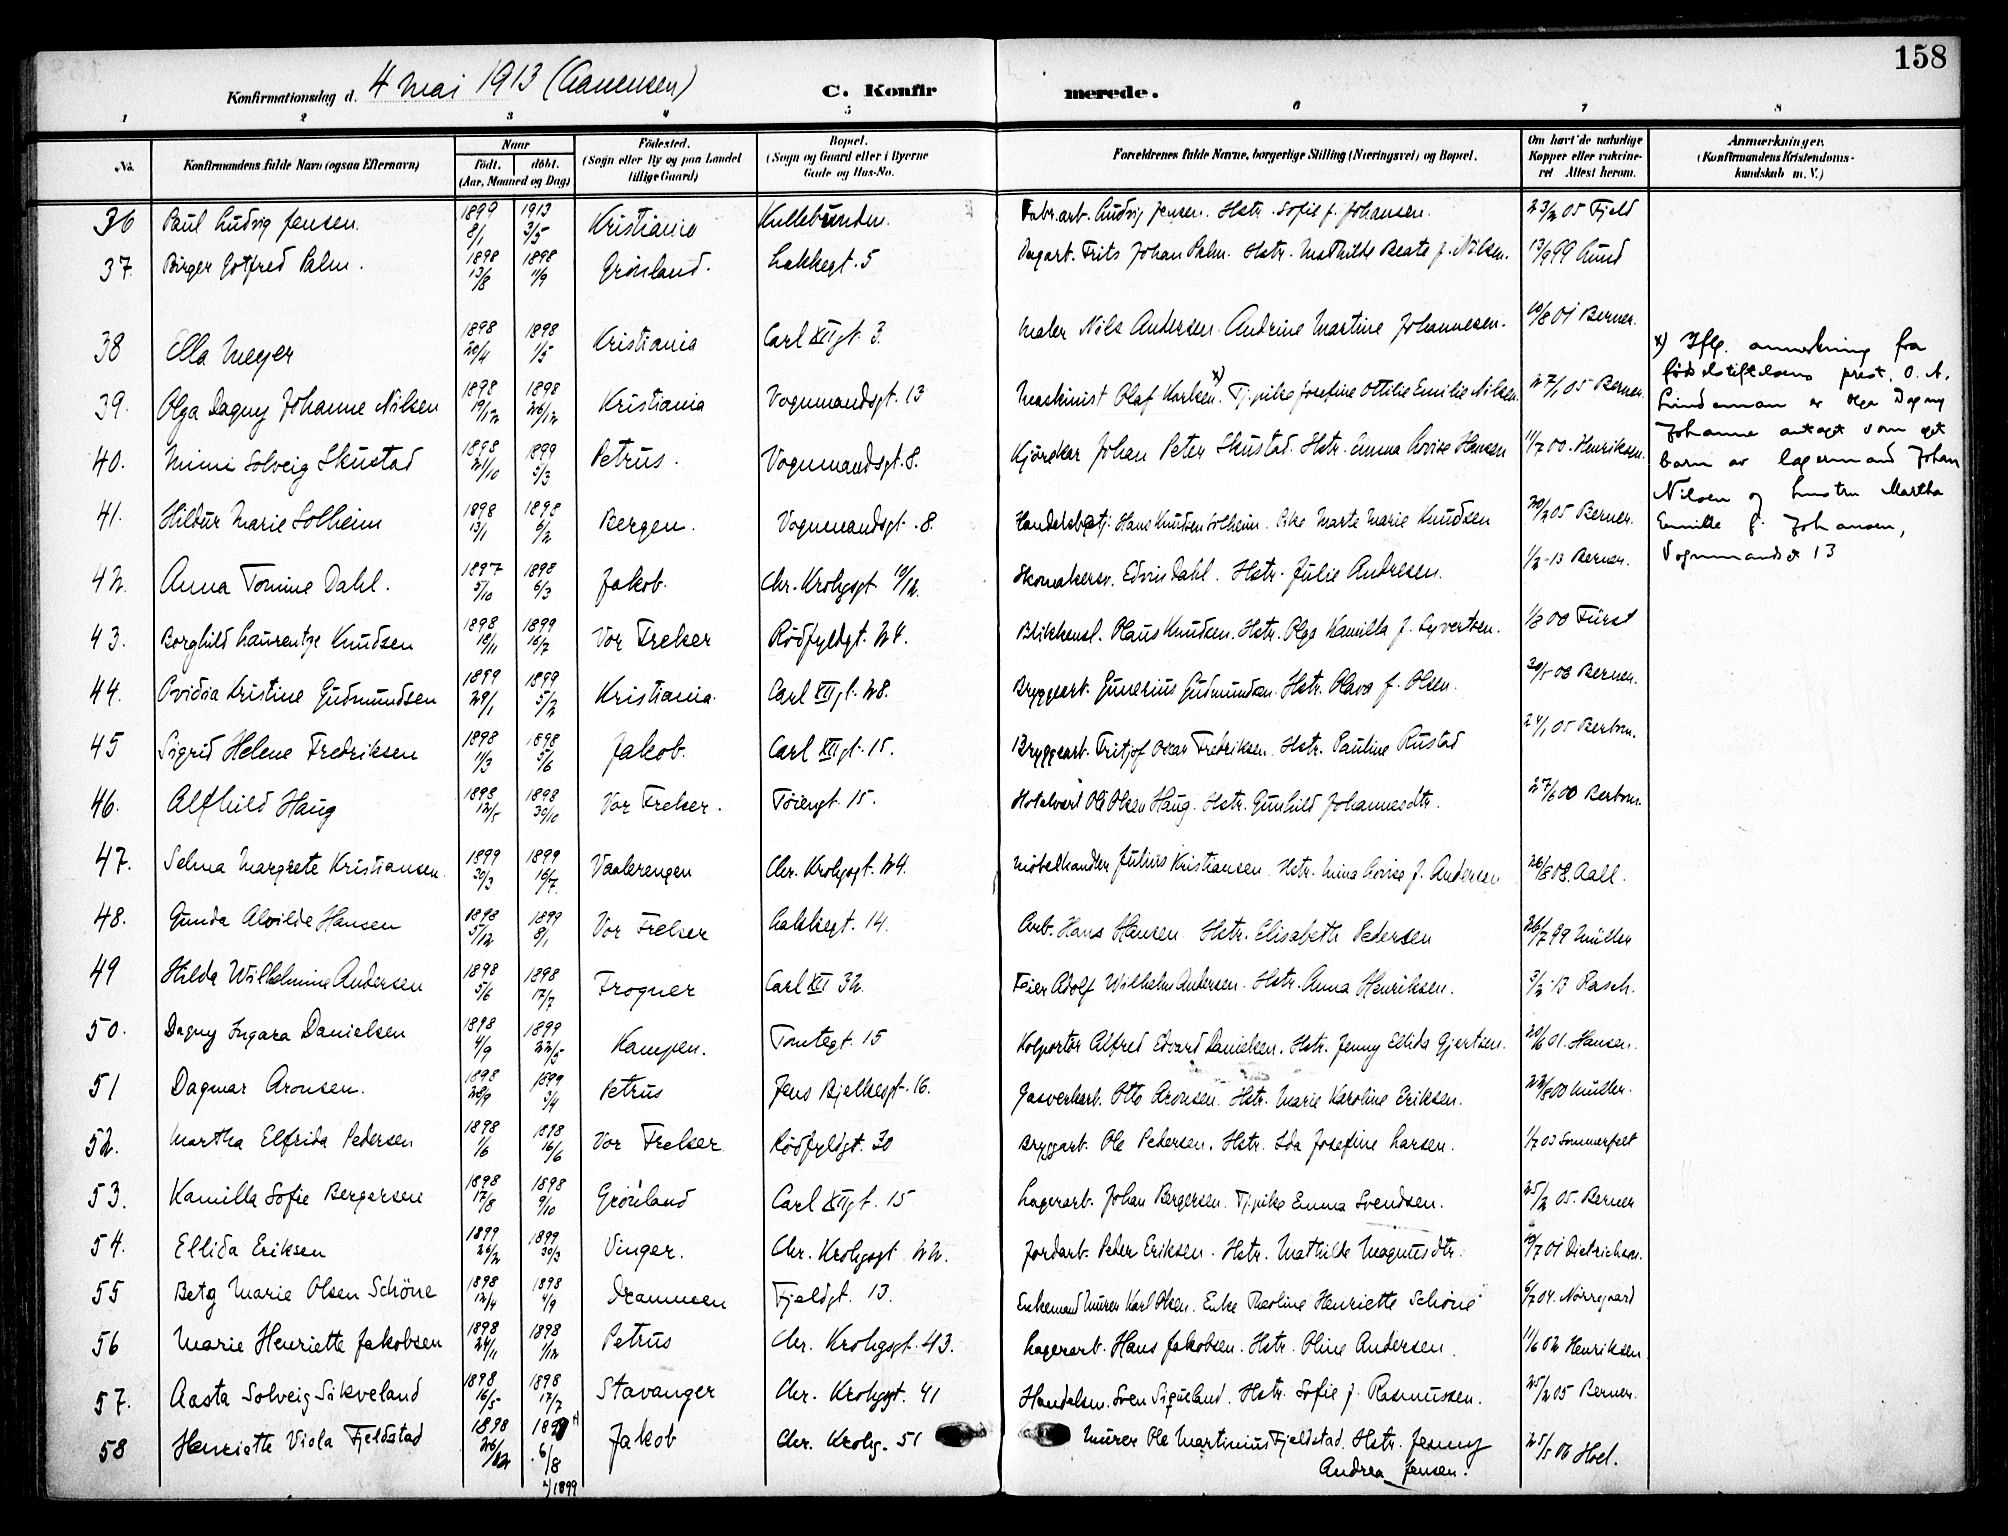 158
Konfirmationsdag d. 4 Mai 1913
C. Konfirmerede.
1 2 3 4 5 6 7 8
No. Konfirmandens fulde Navn (ogsaa Efternavn) Naar født. døbt. (Aar, Maaned og Dag) Fødested. (Sogn eller By og paa Landet tillige Gaard) Bopæl. (Sogn og Gaard eller i Byerne Gade og Hus-No. Forældrenes fulde Navne, borgerlige Stilling (Næringsvei) og Bopæl. Om havt de naturlige Kopper eller vaccineret Attest herom. Anmærkninger. (Konfirmandens Kristendomskundskab m. V.)
36 Paul Ludvig Jensen. 1899 8/1 1913 3/5 Kristiania Kullebunden. Fabr.arb. Ludvig Jensen. Hstr. Sofie f. Johansen. 23/2 05 Fjeld
37 Birger Gotfred Palm. 1898 13/8 1898 11/9 Grønland. Lakkegt. 5 Dagarb. Frits Johan Palm. Hstr. Mathilde Beate f. Nilsen. 13/9 99 Lund
38 Ella Meyer 1898 20/4 1898 1/5 Kristiania Carl XII gt. 3. Maler Nils Andersen. Andrine Martine Johannesen. 10/8 01 Berner.
39. Olga Dagny Johanne Nilsen 1898 19/12 1898 26/12 Kristiania Vognmandsgt. 13 Maskinist Olaf Karlsen. x) Tj.pike Josefine Ottilie Emilie Nilsen. 27/1 05 Berner.
40. Mimi Solveig Skustad 1898 21/10 1899 5/3 Petrus. Vognmandsgt. 8. Kjørekar Johan Peter Skustad. Hstr. Emma Lovise Hansen 11/7 00. Henriksen.
41. Hildur Marie Solheim 1898 13/1 1898 6/2 Bergen. Vognmandsgt. 8. Handelsbetj. Hans Knudsen Solheim. Pike Marte Marie Knudsen 20/2 05 Berner.
42. Anna Tomine Dahl. 1897 5/10 1898 6/3 Jakob. Chr. Krohgsgt 10/12. Skomakersv. Edvin Dahl. Hstr. Julie Andresen. 1/2-13 Berner.
43. Borghild Laurentze Knudsen 1898 18/11 1899 16/7 Vor Frelser Rødfyldgt. 24. Blikkensl. Olaus Knudsen. Hstr. Olga Kamilla f. Syvertsen. 1/8 00 Fürst
44. Ovidia Kristine Gudmundsen 1899 29/1 1899 5/2 Kristiania. Carl XII gt. 28. Bryggearb. Gunerius Gudmundsen. Hstr. Olava f. Olsen. 20/5 08 Berner.
45 Sigrid Helene Fredriksen 1898 11/3 1898 5/6 Jakob. Carl XII gt. 15. Bryggearb. Fritjof Oscar Fredriksen. Hstr. Pauline Rustad 24/1 05 Berbom.
46. Alfhild Haug 1898 12/5 1898 30/10 Vor Frelser. Tøiengt. 15. Hotelvært Ole Olsen Haug. Hstr. Gunhild Johannesdtr. 27/6 00 Berbom.
47. Selma Margrete Kristiansen. 1899 30/3 1899 16/7. Vaalerengen Chr. Krohgsgt. 24. Møbelhandler Julius Kristiansen. Hstr. Mina Lovise f. Andersen 26/8 08. Aall.
48. Gunda Alvilde Hansen 1898 5/12 1899 8/1 Vor Frelser Lakkegt. 14. Arb. Hans Hansen. Hstr. Elisabeth Pedersen 26/7 99 Müller
49 Hilda Wilhelmine Andersen 1898 5/6 1898 17/7 Frogner Carl XII 32. Feier Adolf Wilhelm Andersen. Hstr. Anna Henriksen. 3/2-13 Rasch.
50. Dagny Ingara Danielsen 1898 4/9 1899 22/5 Kampen. Tomtegt. 15 Kolportør Alfred Edvard Danielsen. Hstr. Jenny Ellida Gjertsen. 20/6 01. Hansen.
51 Dagmar Aronsen. 1898 28/9 1899 3/4 Petrus Jens Bjelkesgt. 16. Gasverkarb. Otto Aronsen. Hstr. Marie Karoline Eriksen. 22/8 00 Müller.
52. Martha Elfrida Pedersen 1898 1/6 1898 16/6 Vor Frelser Rødfyldgt. 30 Bryggarb. Ole Pedersen. Hstr. Ida Josefine Larsen. 1/7 03 Sommerfelt
53. Kamilla Sofie Bergersen 1898 17/8 1898 9/10 Grønland Carl XII gt. 15 Lagerarb. Johan Bergersen. Tj.pike Emma Svendsen. 25/2 05. Berner
54. Ellida Eriksen 1899 26/2 1899 30/3 Vinger. Chr. Krohgsgt 22. Jordarb. Peder Eriksen. Hstr. Mathilde Magnusdtr. /7 01 Dietrichson.
55 Betzy Marie Olsen Schöne 1898 12/4 1898 4/9 Drammen Fjeldgt. 13. Enkemand Murer Karl Olsen. Enke Theoline Henriette Schöne 6/7 04. Nørregaard
56 Marie Henriette Jakobsen 1898 24/11 1898 1/12 Petrus Chr. Krohgsgt. 43. Lagerarb. Hans Jakobsen. Hstr. Oline Andersen. 11/6 02 Henriksen.
57. Aasta Solveig Sikveland 1898 16/5 1898 17/7 Stavanger Chr. Krohgsgt. 41 Handelsm. Sven Sigveland. Hstr. Sofie f. Rasmussen. 25/2 05 Berner.
58 Henriette Viola Fjeldstad 1898 26/12 6/8 1899 Jakob Chr. Krohg. 51 Murer Ole Martinius Fjeldstad. Hstr. Jenny
Andrea Jensen. 25/5 06 Hoel.
x) Iflg. anmerkning fra
fødselstiftelsens prest, O. A.
Lindeman er Olga Dagny
Johanne antagt som eget
barn av lagermand Johan
Nilsen og hustru Martha
Emilie f. Johansen,
Vognmandsgt 13